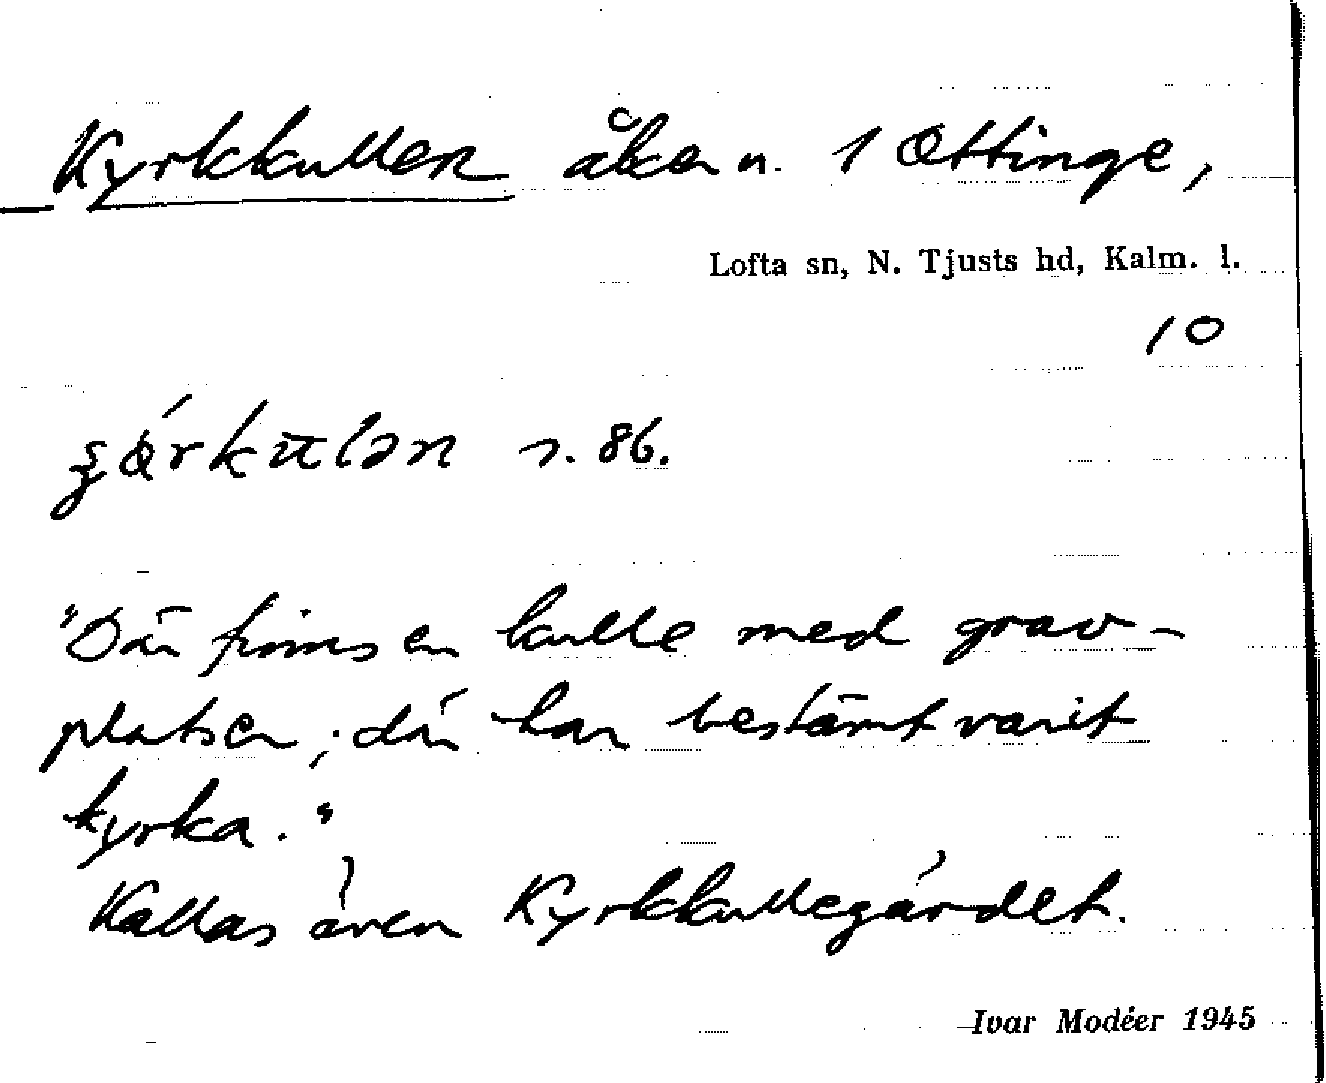 Kyrkkullen åker n. 1 Ottinge,
Lofta sn, N. Tjusts hd, Kalm. l.
10
86.
"Där finns en kulle med grav-
platser; där har bestämt varit
kyrka."
Kallas även Kyrkkullegärdet.
Ivar Modéer 1945